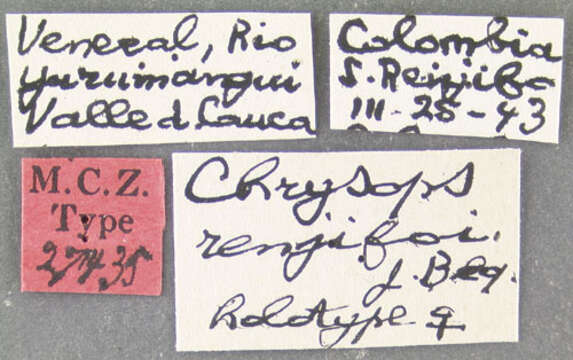 Veneral, Rio
Yurumangui
Valle d Cauca
Colombia
S. Renjifo
III-25-43
M.C.Z.
Type
27435
Chrysops
renjifoi.
J. Beq.
holotype ♀